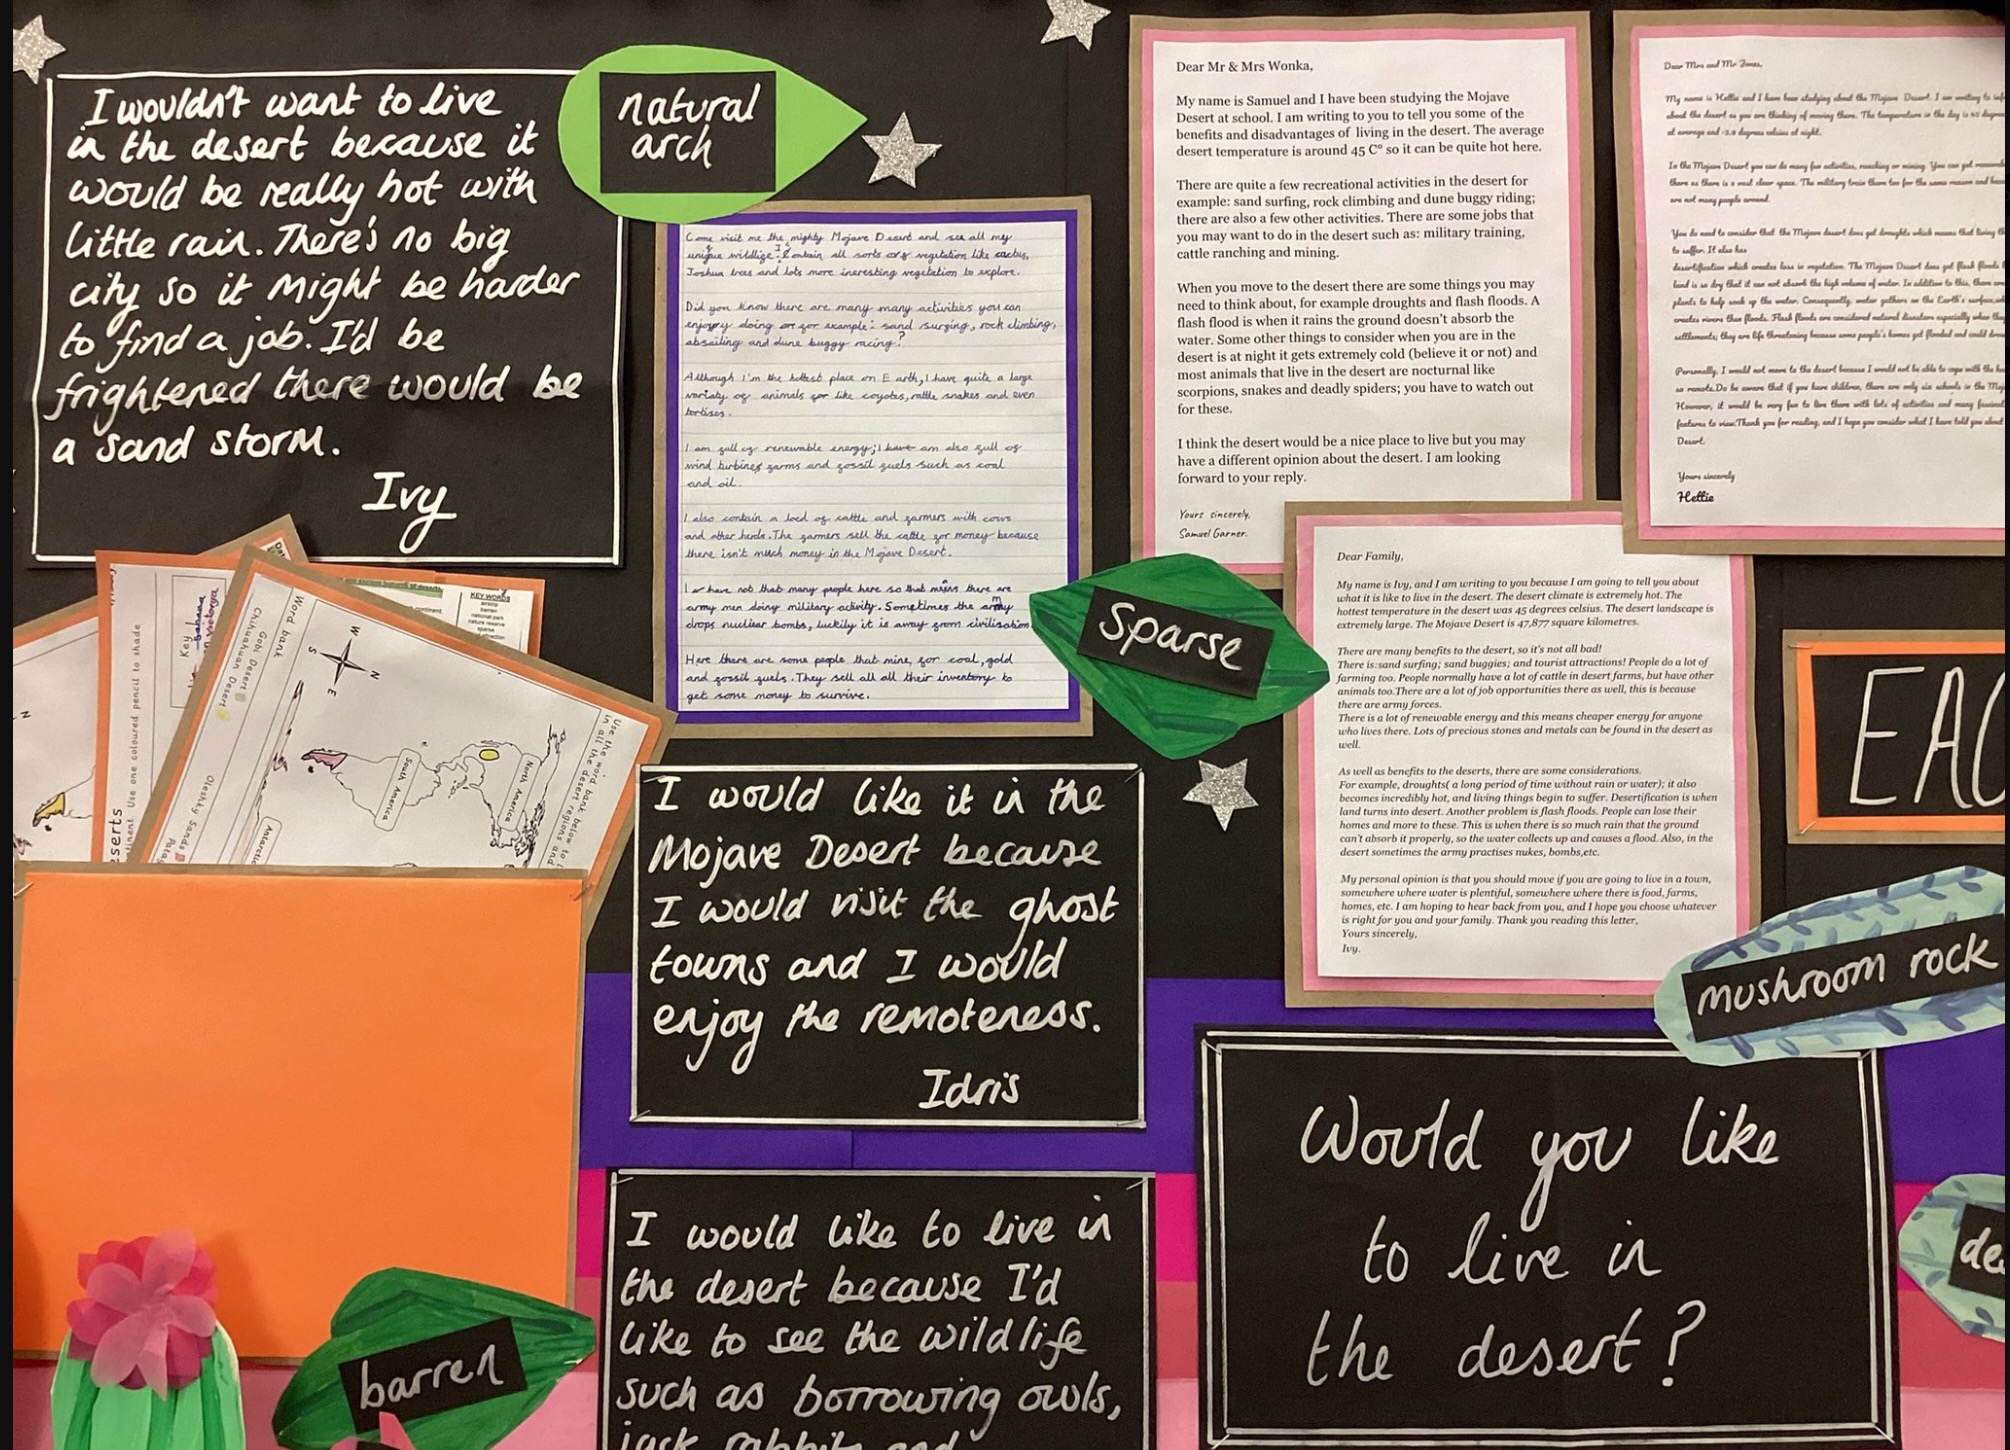 I wouldn't want to live
in the desert because it
would be really hot with
little rain. There's no big
city so it might be harder
to find a job. I'd be
frightened there would be
a sand storm.
Ivy
natural
arch
Come visit me the mighty Mojave Desert and see all my
unique wildlife. I contain all sorts of vegetation like cactus,
Joshua trees and lots more ineresting vegetation to explore.
Did you know there are many many activities you can
enjoy doing for example: sand surfing, rock climbing,
absailing and dune buggy racing?
Although I'm the hottest place on Earth, I have quite a large
variaty of animals like coyotes, rattle snakes and even
tortises.
I am full of renewable energy; I am also full of
wind turbines farms and fossil fuels such as coal
and oil.
I also contain a load of cattle and farmers with cows
and other herds. The farmers sell the cattle for money because
there isn't much money in the Mojave Desert.
I have not that many people here so that means there are
army men doing military activity. Sometimes the army
drops nuclear bombs, luckily it is away from civilisation.
Here there are some people that mine, for coal, gold
and fossil fuels. They sell all all their inventory to
get some money to survive.
Dear Mr & Mrs Wonka,
My name is Samuel and I have been studying the Mojave
Desert at school. I am writing to you to tell you some of the
benefits and disadvantages of living in the desert. The average
desert temperature is around 45 C° so it can be quite hot here.
There are quite a few recreational activities in the desert for
example: sand surfing, rock climbing and dune buggy riding;
there are also a few other activities. There are some jobs that
you may want to do in the desert such as: military training,
cattle ranching and mining.
When you move to the desert there are some things you may
need to think about, for example droughts and flash floods. A
flash flood is when it rains the ground doesn't absorb the
water. Some other things to consider when you are in the
desert is at night it gets extremely cold (believe it or not) and
most animals that live in the desert are nocturnal like
scorpions, snakes and deadly spiders; you have to watch out
for these.
I think the desert would be a nice place to live but you may
have a different opinion about the desert. I am looking
forward to your reply.
Yours sincerely,
Samuel Garner.
Dear Mrs and Mr Jones,
My name is Hettie and I have been studying about the Mojave Desert. I am writing to
about the desert as you are thinking of moving there. The temperature in the day is 45
at average and -3.9 degrees celsius at night.
In the Mojave Desert you can do many fun activities, ranching or mining. You can get
there as there is a vast clear space. The military train there too for the same reason and
are not many people around.
You do need to consider that the Mojave desert does get droughts which means that living
to suffer. It also has
desertification which creates loss in vegetation. The Mojave Desert does get flash floods
land is so dry that it can not absorb the high volume of water. In addition to this, there
plants to help soak up the water. Consequently, water gathers on the Earth's surface,
creates rivers than floods. Flash floods are considered natural disasters especially when
settlements; they are life threatening because some people's homes get flooded and could
Personally, I would not move to the desert because I would not be able to cope with the
so remote. Do be aware that if you have children, there are only six schools in the
However, it would be very fun to live there with lots of activities and many
features to view. Thank you for reading, and I hope you consider what I have told you about
Desert.
Yours sincerely
Hettie
sparse
Dear Family,
My name is Ivy, and I am writing to you because I am going to tell you about
what it is like to live in the desert. The desert climate is extremely hot. The
hottest temperature in the desert was 45 degrees celsius. The desert landscape is
extremely large. The Mojave Desert is 47,877 square kilometres.
There are many benefits to the desert, so it's not all bad!
There is:sand surfing; sand buggies; and tourist attractions! People do a lot of
farming too. People normally have a lot of cattle in desert farms, but have other
animals too.There are a lot of job opportunities there as well, this is because
there are army forces.
There is a lot of renewable energy and this means cheaper energy for anyone
who lives there. Lots of precious stones and metals can be found in the desert as
well.
As well as benefits to the deserts, there are some considerations.
For example, droughts( a long period of time without rain or water); it also
becomes incredibly hot, and living things begin to suffer. Desertification is when
land turns into desert. Another problem is flash floods. People can lose their
homes and more to these. This is when there is so much rain that the ground
can't absorb it properly, so the water collects up and causes a flood. Also, in the
desert sometimes the army practises nukes, bombs,etc.
My personal opinion is that you should move if you are going to live in a town,
somewhere where water is plentiful, somewhere where there is food, farms,
homes, etc. I am hoping to hear back from you, and I hope you choose whatever
is right for you and your family. Thank you reading this letter,
Yours sincerely,
Ivy.
KEY WORDS
airstrip
barren
national park
nature reserve
sparse
Key
Use one coloured pencil to shade
Word bank
Gobi Desert
Chihuahuan Desert
Oleshky Sands
N
E
S
W
North America
South America
Use the word bank below to
in all the desert regions and
I would like it in the
Mojave Desert because
I would visit the ghost
towns and I would
enjoy the remoteness.
Idris
EAC
mushroom rock
I would like to live in
the desert because I'd
like to see the wildlife
such as borrowing owls,
jack rabbits and
Would you like
to live in
the desert?
de
barren